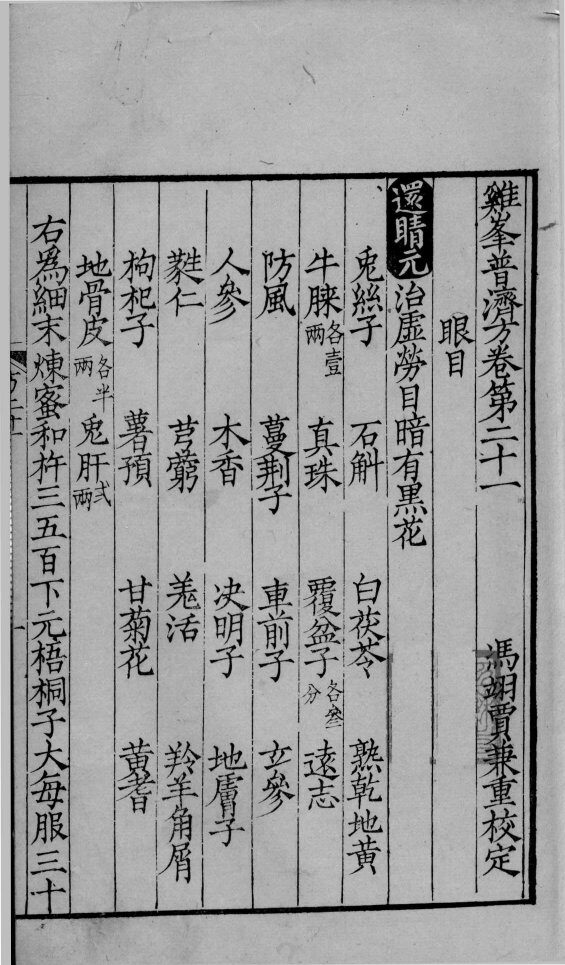 雞峯普濟方卷第二十一　　馮翊賈兼重校定
眼目
還睛元治虛勞目暗有黑花
兎絲子　石斛　白茯苓　熟乾地黃
牛膝各壹兩　真珠　覆盆子各叄分　遠志
防風　蔓荆子　車前子　玄參
人參　木香　决明子　地膚子
蕤仁　芎藭　羗活　羚羊角屑
枸杞子　薯預　甘菊花　黃耆
地骨皮各半兩　兎肝弍兩
右爲細末煉蜜和杵三五百下元梧桐子大每服三十